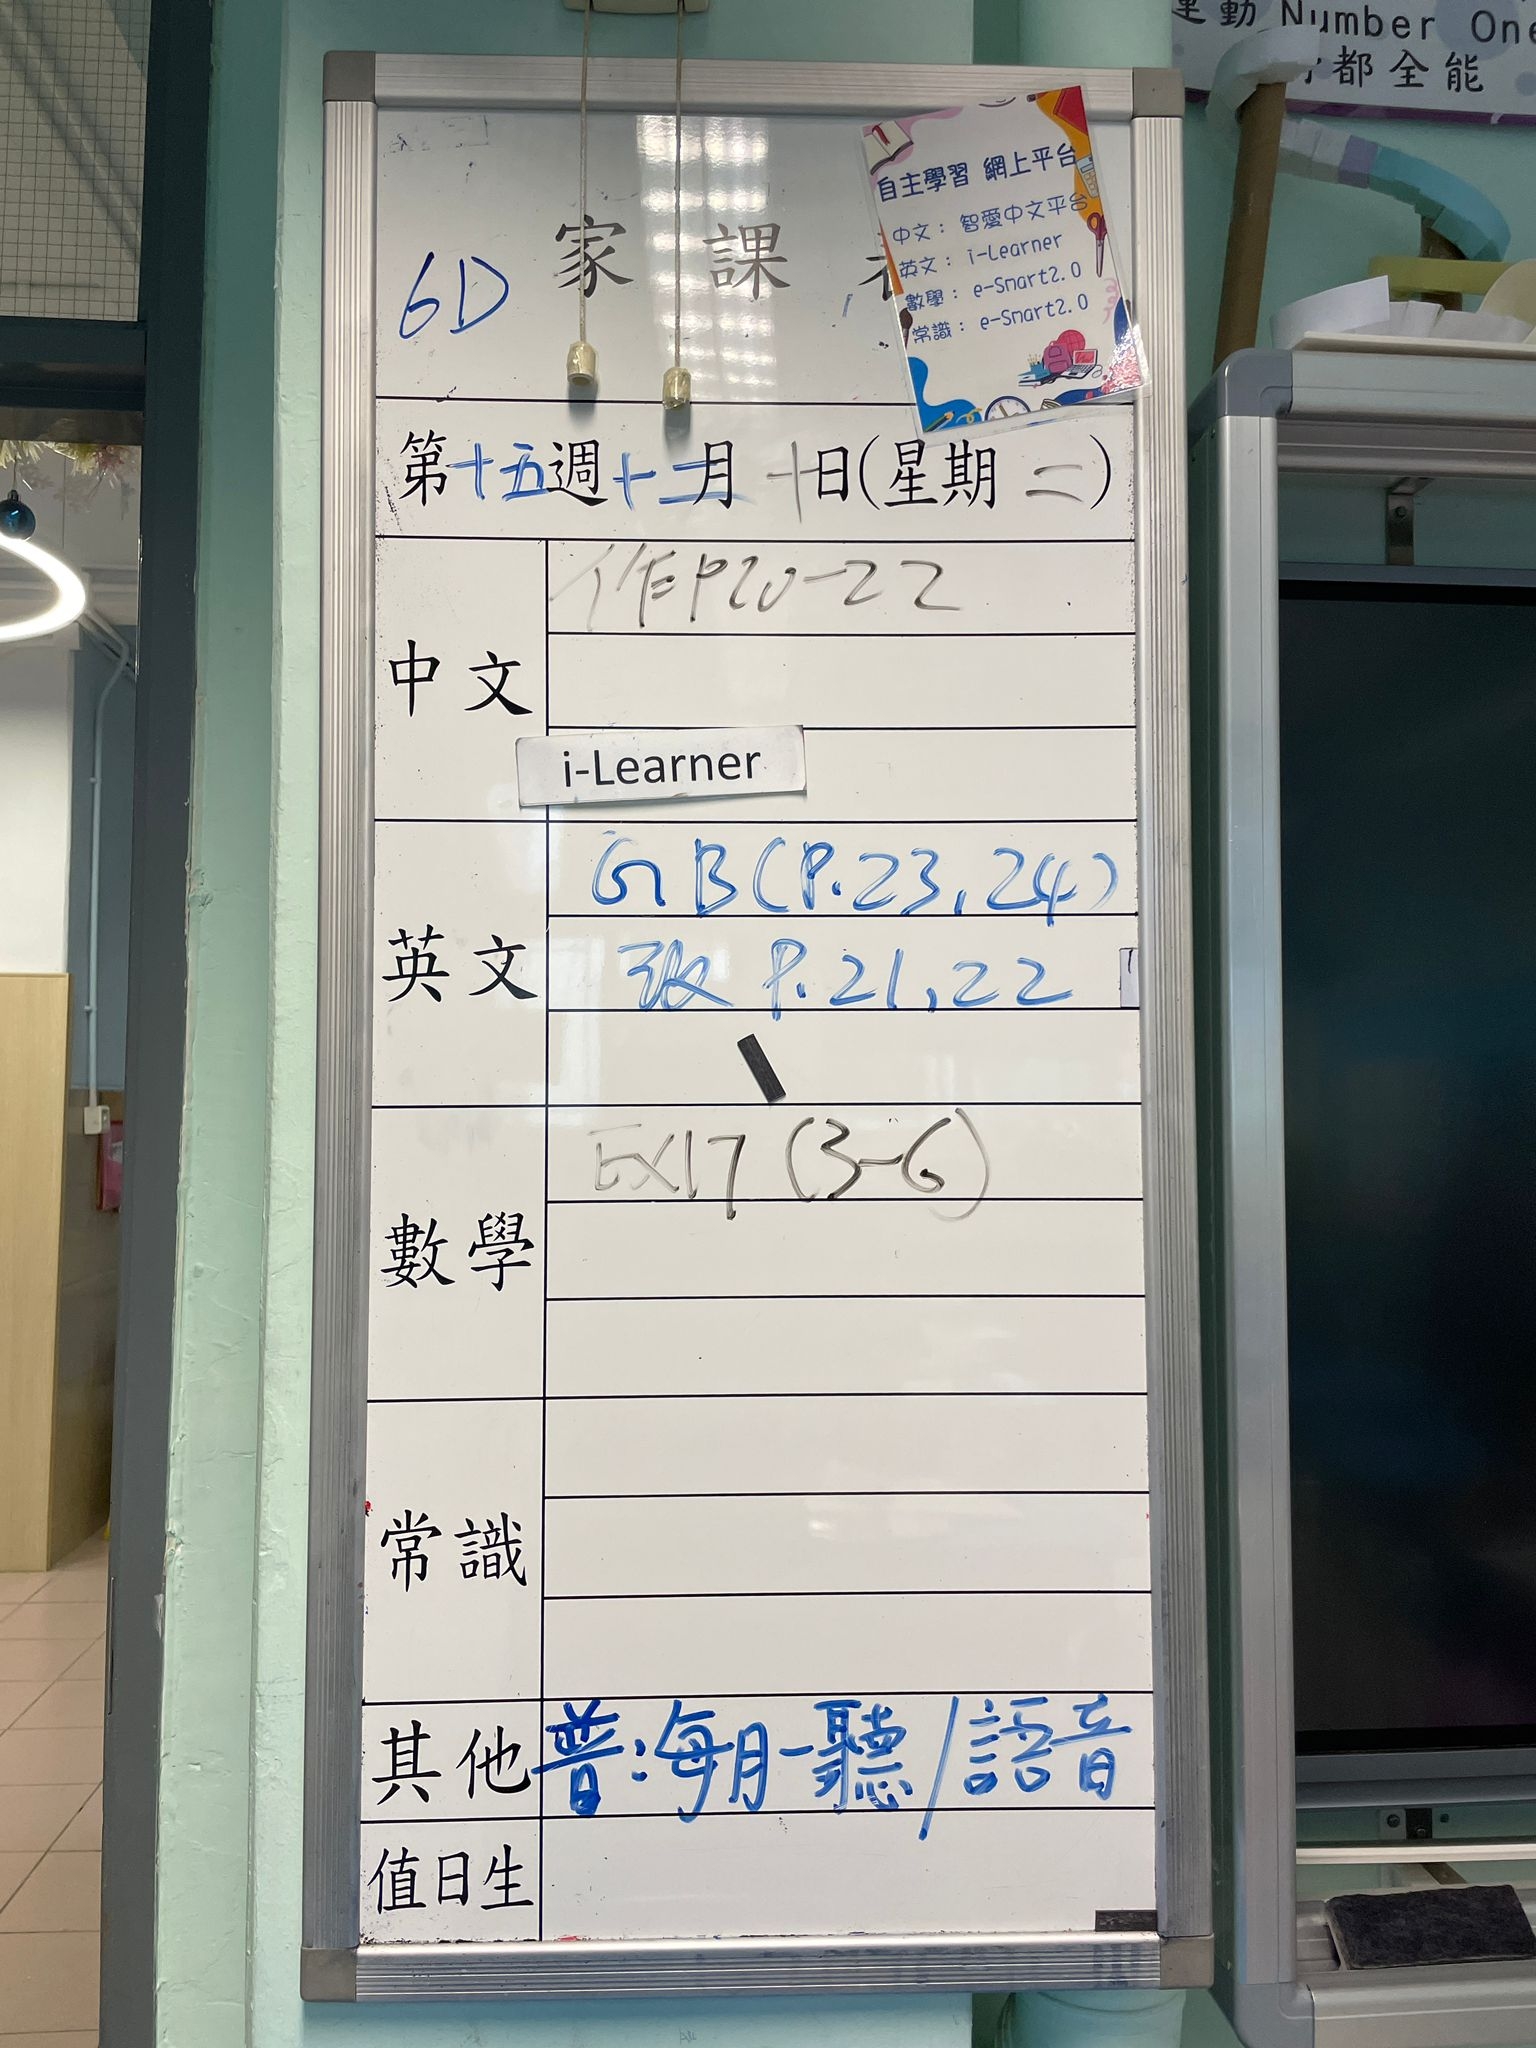 動 Number One
都全能
自主學習 網上平台
中文: 智愛中文平台
英文: i-Learner
數學: e-Smart2.0
常識: e-Smart2.0
6D
家課
第十五週十二月十日(星期二)
中文
作P20-22
i-Learner
英文
GB(P.23,24)
P.21,22
數學
EX17 (3-6)
常識
其他
普:每月一聽/語音
值日生